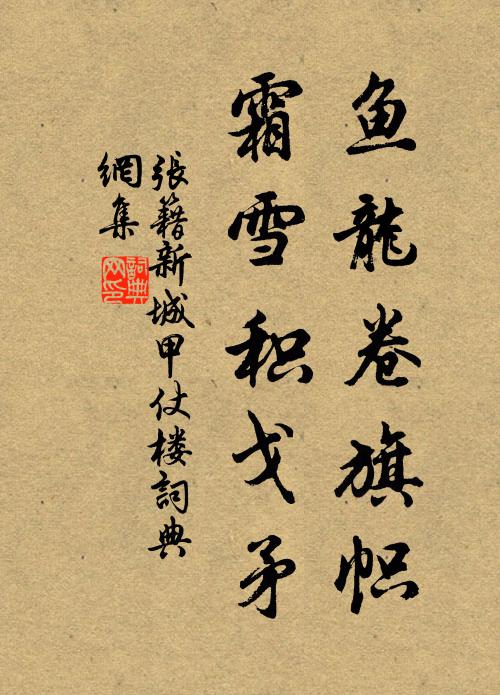 鱼龍卷旗帜
霜雪积戈矛
張籍新城甲仗楼詞典
網集
詞典
网印